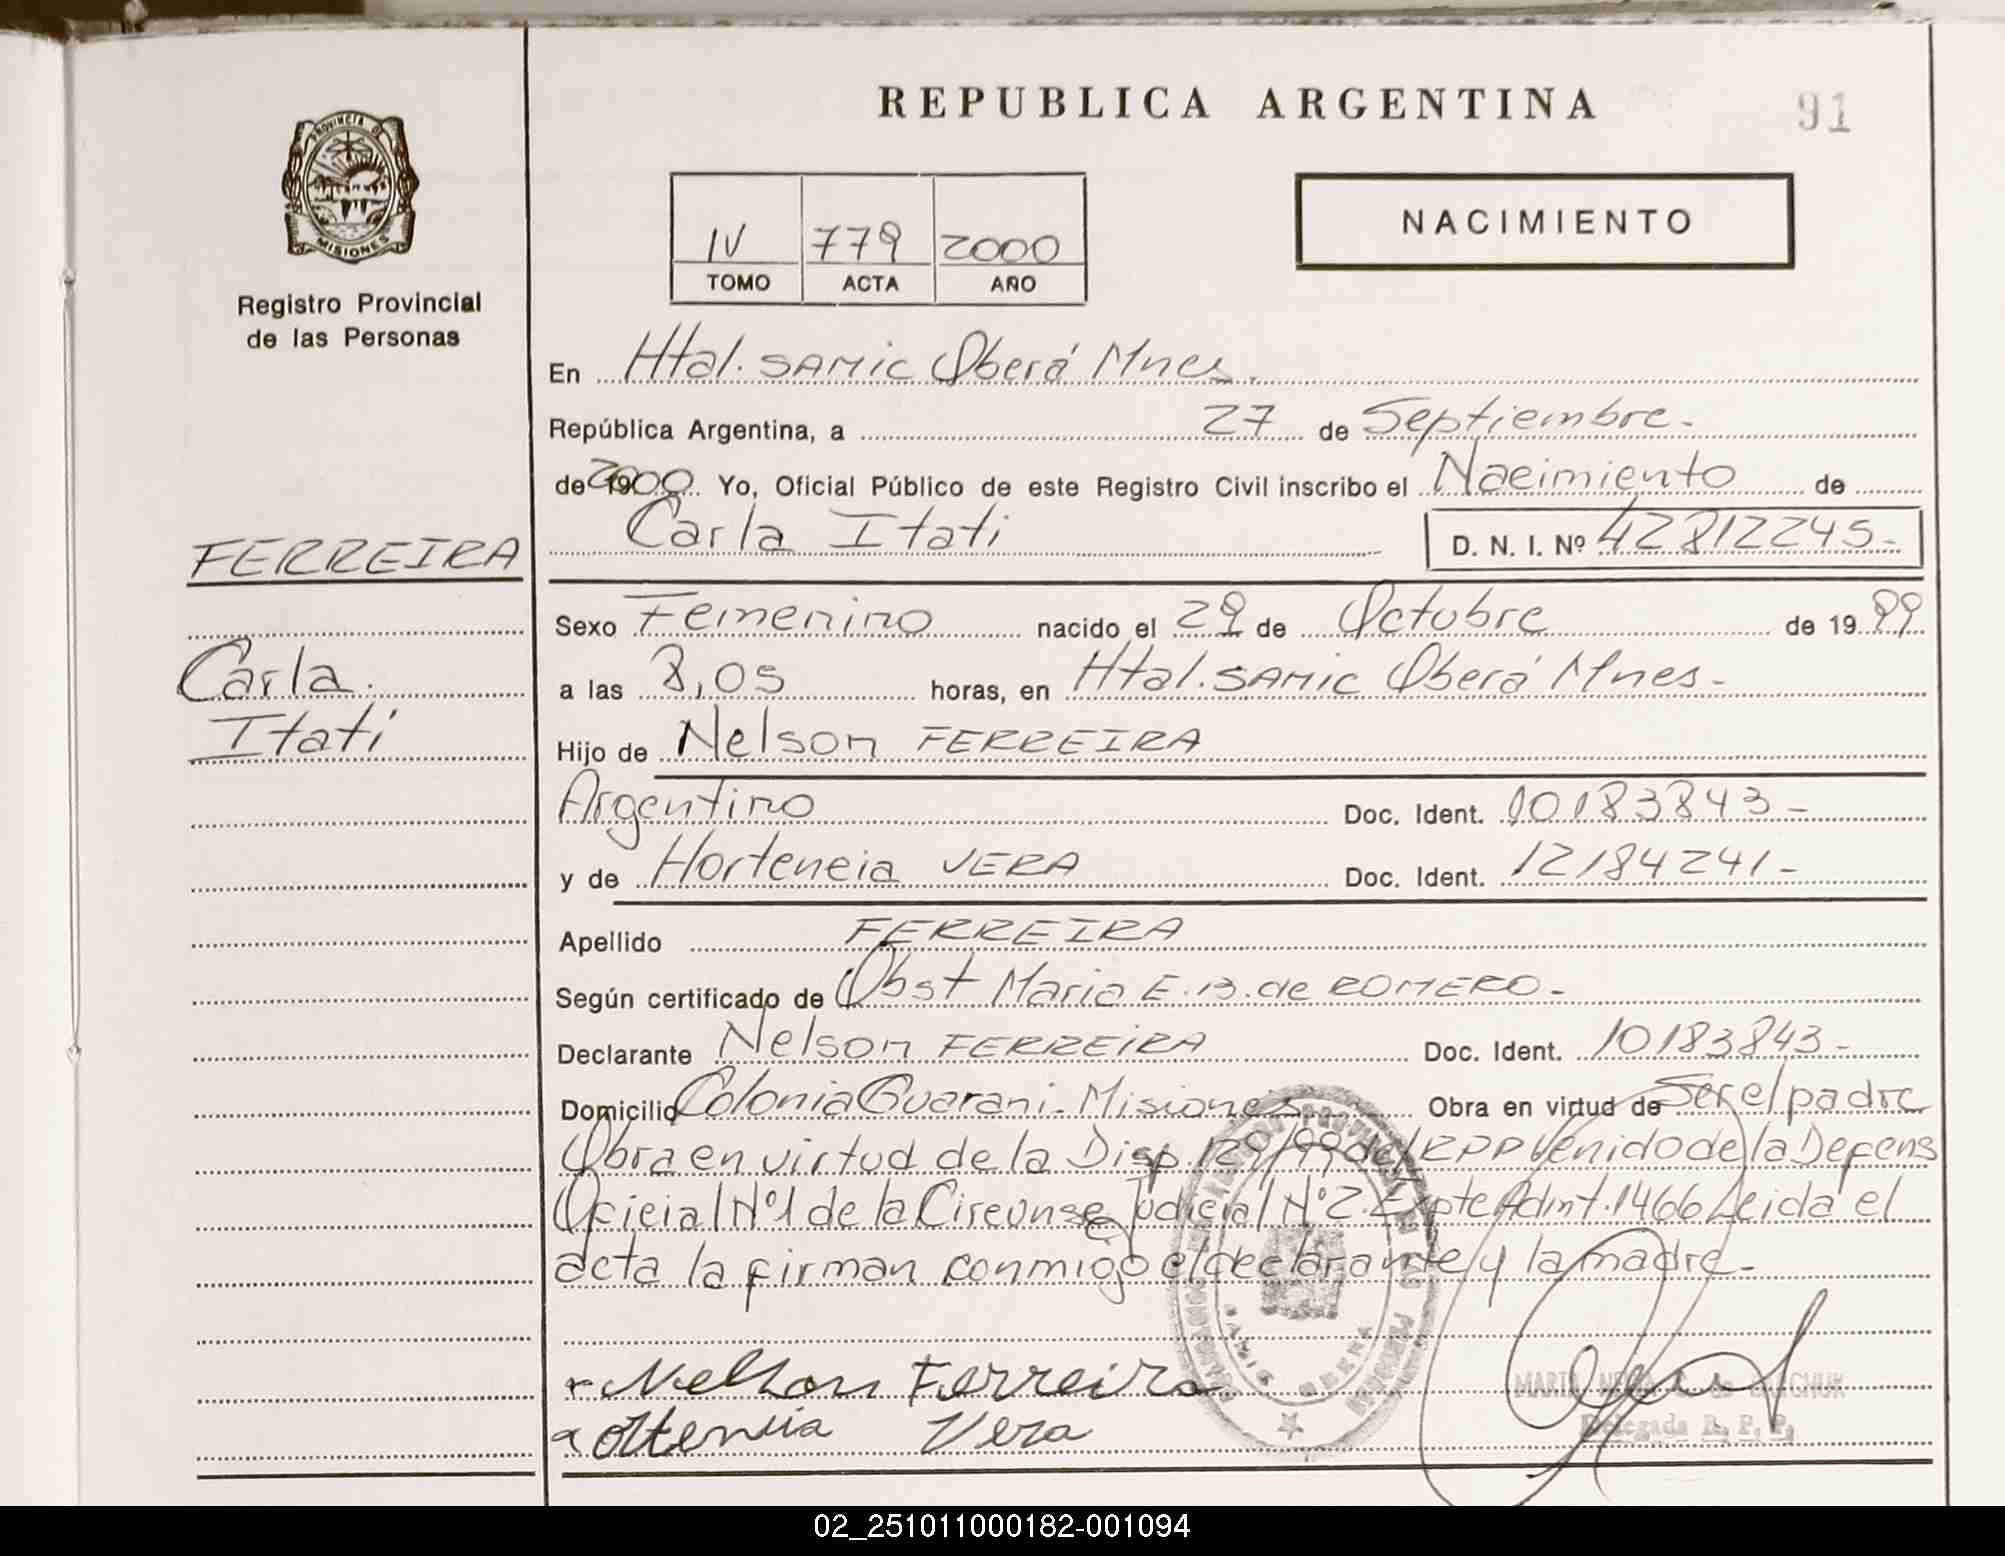 REPUBLICA ARGENTINA
91
PROVINCIA DE
MISIONES
Registro Provincial
de las Personas
NACIMIENTO
IV 779 2000
TOMO ACTA AÑO
En Htal. SAMIC Oberá Mnes.
República Argentina, a 27 de Septiembre.
de 2000 Yo, Oficial Público de este Registro Civil inscribo el Nacimiento de
Carla Itati
D. N. I. Nº 42812245-
FERREIRA
Carla.
Itati
Sexo Femenino nacido el 29 de Octubre de 1999
a las 8,05 horas, en Htal. SAMIC Oberá Mnes-
Hijo de Nelson FERREIRA
Argentino Doc. Ident. 10183843-
y de Hortencia VERA Doc. Ident. 12184241-
Apellido FERREIRA
Según certificado de Obst Maria E. B. de ROMERO-
Declarante Nelson FERREIRA Doc. Ident. 10183843-
Domicilio Colonia Guarani-Misiones Obra en virtud de Ser el padre
Obra en virtud de la Disp. 129/99 del RPP venido de la Defens
Oficial Nº1 de la Circunsc Judicial Nº2. Expte Admt. 1466 Leida el
acta la firman conmigo el declarante y la madre-
Nelson Ferreira
Hortencia Vera
SAMIC OBERA
Delegada R. P. P.
02_251011000182-001094